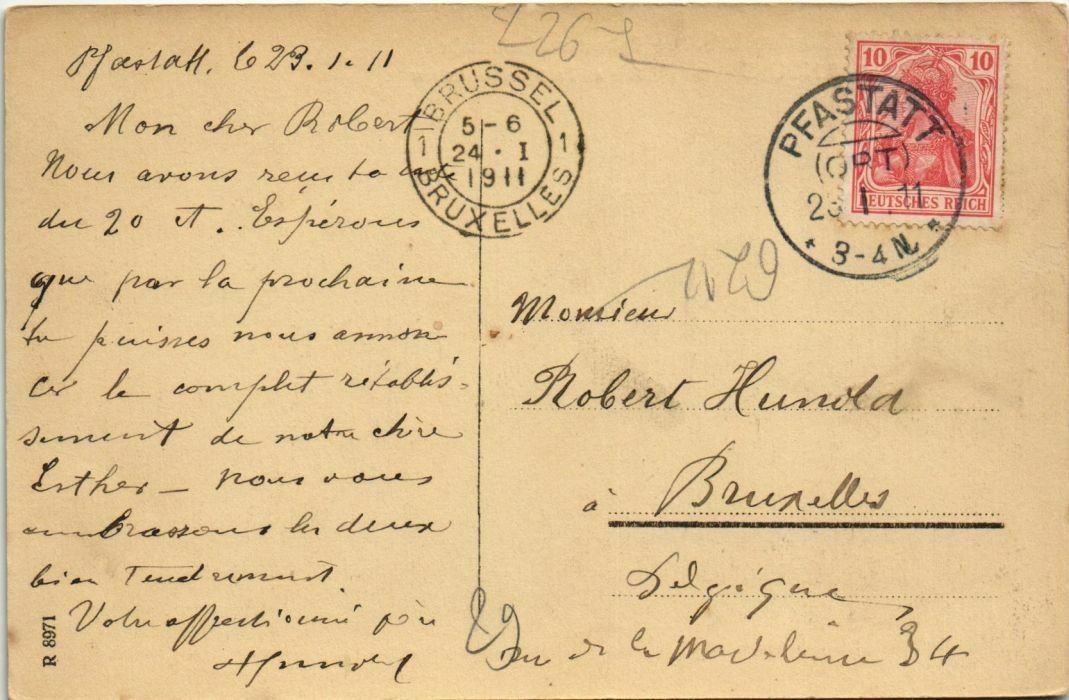 Pfastatt, le 23. 1. 11
Mon cher Robert
Nous avons reçu ta
du 20 ct. Espérons
que par la prochaine
tu puisses nous annon
cer le complet rétablis-
sement de notre chère
Esther – nous vous
embrassons les deux
bien tendrement.
Votre affectionné père
Hunold
R 8971
BRUSSEL
1 1
5-6
24 . I
1911
BRUXELLES
10 10
DEUTSCHES REICH
PFASTATT
(ORT)
23 1 11
* 3-4 N. *
Monsieur
Robert Hunold
à Bruxelles
Belgique
rue de la Madeleine 34